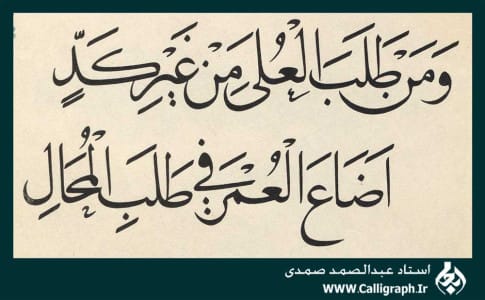 وَمَنْ طَلَبَ الْعُلىٰ مِنْ غَيْرِ كَدٍّ
اَضَاعَ الْعُمْرَ فِي طَلَبِ الْمُحَالِ
استاد عبدالصمد صمدی
www.Calligraph.Ir